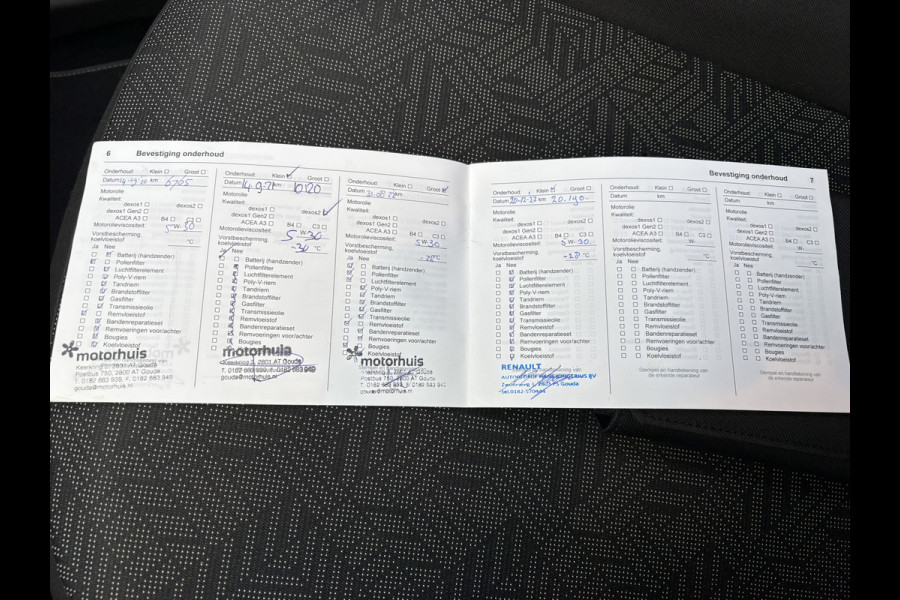 6 Bevestiging onderhoud
Onderhoud: Klein Groot
Datum 14-9-'20 km 6705
Motorolie
Kwaliteit:
dexos1
dexos1 Gen2
ACEA A3 B4 C3
Motorolieviscositeit: 5 W 30
Vorstbescherming
koelvloeistof °C
Ja Nee
Batterij (handzender)
Pollenfilter
Luchtfilterelement
Poly-V-riem
Tandriem
Brandstoffilter
Gasfilter
Transmissieolie
Remvloeistof
Bandenreparatieset
Remvoeringen voor/achter
Bougies
motorhuis
Postbus 750, 2800 AT Gouda
gouda@motorhuis.nl
Onderhoud: Klein Groot
Datum 14-9-21 km
Motorolie
Kwaliteit:
dexos1 dexos2
dexos1 Gen2
ACEA A3 B4 C3
Motorolieviscositeit: 5 W 30
Vorstbescherming
koelvloeistof °C
Ja Nee
Batterij (handzender)
Pollenfilter
Luchtfilterelement
Poly-V-riem
Tandriem
Brandstoffilter
Gasfilter
Transmissieolie
Remvloeistof
Bandenreparatieset
Remvoeringen voor/achter
Bougies
motorhuis
gouda@motorhuis.nl
Onderhoud: Klein Groot
Datum km
Motorolie
Kwaliteit:
dexos1 dexos2
dexos1 Gen2
ACEA A3 B4 C3
Motorolieviscositeit: 5 W 30
Vorstbescherming
koelvloeistof °C
Ja Nee
Batterij (handzender)
Pollenfilter
Luchtfilterelement
Poly-V-riem
Tandriem
Brandstoffilter
Gasfilter
Transmissieolie
Remvloeistof
Bandenreparatieset
Remvoeringen voor/achter
Bougies
Koelvloeistof
motorhuis
gouda@motorhuis.nl
Bevestiging onderhoud 7
Onderhoud: Klein Groot
Datum km
Motorolie
Kwaliteit:
dexos1 dexos2
dexos1 Gen2
ACEA A3 B4 C3
Motorolieviscositeit: 5 W 30
Vorstbescherming
koelvloeistof °C
Ja Nee
Batterij (handzender)
Pollenfilter
Luchtfilterelement
Poly-V-riem
Tandriem
Brandstoffilter
Gasfilter
Transmissieolie
Remvloeistof
Bandenreparatieset
Remvoeringen voor/achter
Bougies
Koelvloeistof
RENAULT
Onderhoud: Klein Groot
Datum km
Motorolie
Kwaliteit:
dexos1 dexos2
dexos1 Gen2
ACEA A3 B4 C3
Motorolieviscositeit: W
Vorstbescherming
koelvloeistof °C
Ja Nee
Batterij (handzender)
Pollenfilter
Luchtfilterelement
Poly-V-riem
Tandriem
Brandstoffilter
Gasfilter
Transmissieolie
Remvloeistof
Bandenreparatieset
Remvoeringen voor/achter
Bougies
Koelvloeistof
Stempel en handtekening van
de erkende reparateur
Onderhoud: Klein Groot
Datum km
Motorolie
Kwaliteit:
dexos1 dexos2
dexos1 Gen2
ACEA A3 B4 C3
Motorolieviscositeit: W
Vorstbescherming
koelvloeistof °C
Ja Nee
Batterij (handzender)
Pollenfilter
Luchtfilterelement
Poly-V-riem
Tandriem
Brandstoffilter
Gasfilter
Transmissieolie
Remvloeistof
Bandenreparatieset
Remvoeringen voor/achter
Bougies
Koelvloeistof
Stempel en handtekening van
de erkende reparateur